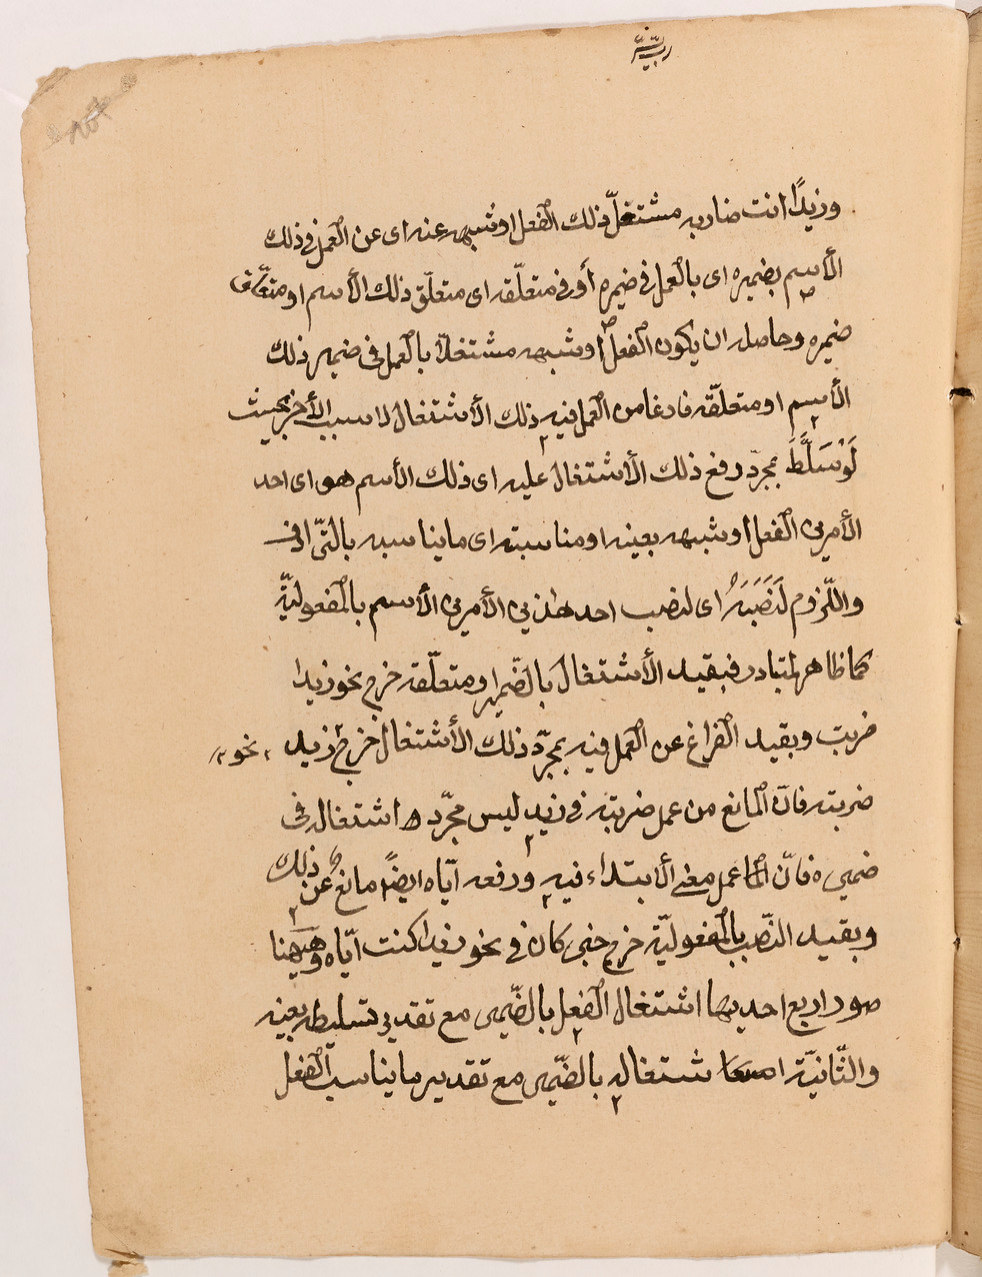 ربّ يسّر
وزيدًا انت ضاربه مشتغلّ ذلك الفعل او شبهه عنه اى عن العمل فى ذلك
الأسم بضميره اى بالعمل فى ضميره أو فى متعلّقه اى متعلّق ذلك الأسم او متعلّق
ضميره وحاصله ان يكون الفعل او شبهه مشتغلاً بالعمل فى ضمير ذلك
الأسم او متعلّقه فارغا من العمل فيه ذلك الأشتغال لا سبب الأخر بحيث
لَوْ سَلَّطَ بمجرّد رفع ذلك الأشتغال عليه اى ذلك الأسم هو اى احد
الأمرين الفعل او شبهه بعينه او مناسبته اى ما يناسبه بالتّرادف
واللّزوم لَنَصَبَهُ اى لنصب احد هذين الأمرين الأسم بالمفعوليّة
كما ظاهر لمتبادر فبقيد الأشتغال بالضّمير او متعلّقه خرج نحو زيدا
ضربت وبقيد الفراغ عن العمل فيه بمجرّد ذلك الأشتغال خرج زيد نحو
ضربته فانّ المانع من عمل ضربته فى زيد ليس مجرّد اشتغاله فى
ضميره فانّ عمل معنى الأبتداء فيه ورفعه ايّاه ايضًا مانع عن ذلك
وبقيد النّصب بالمفعوليّة خرج خبر كان فى نحو زيدا كنت ايّاه وهيهنا
صور اربع احديها اشتغال الفعل بالضّمير مع تقدير تسليطه بعينه
والثّانيّة اشتغاله بالضّمير مع تقدير ما يناسب الفعل